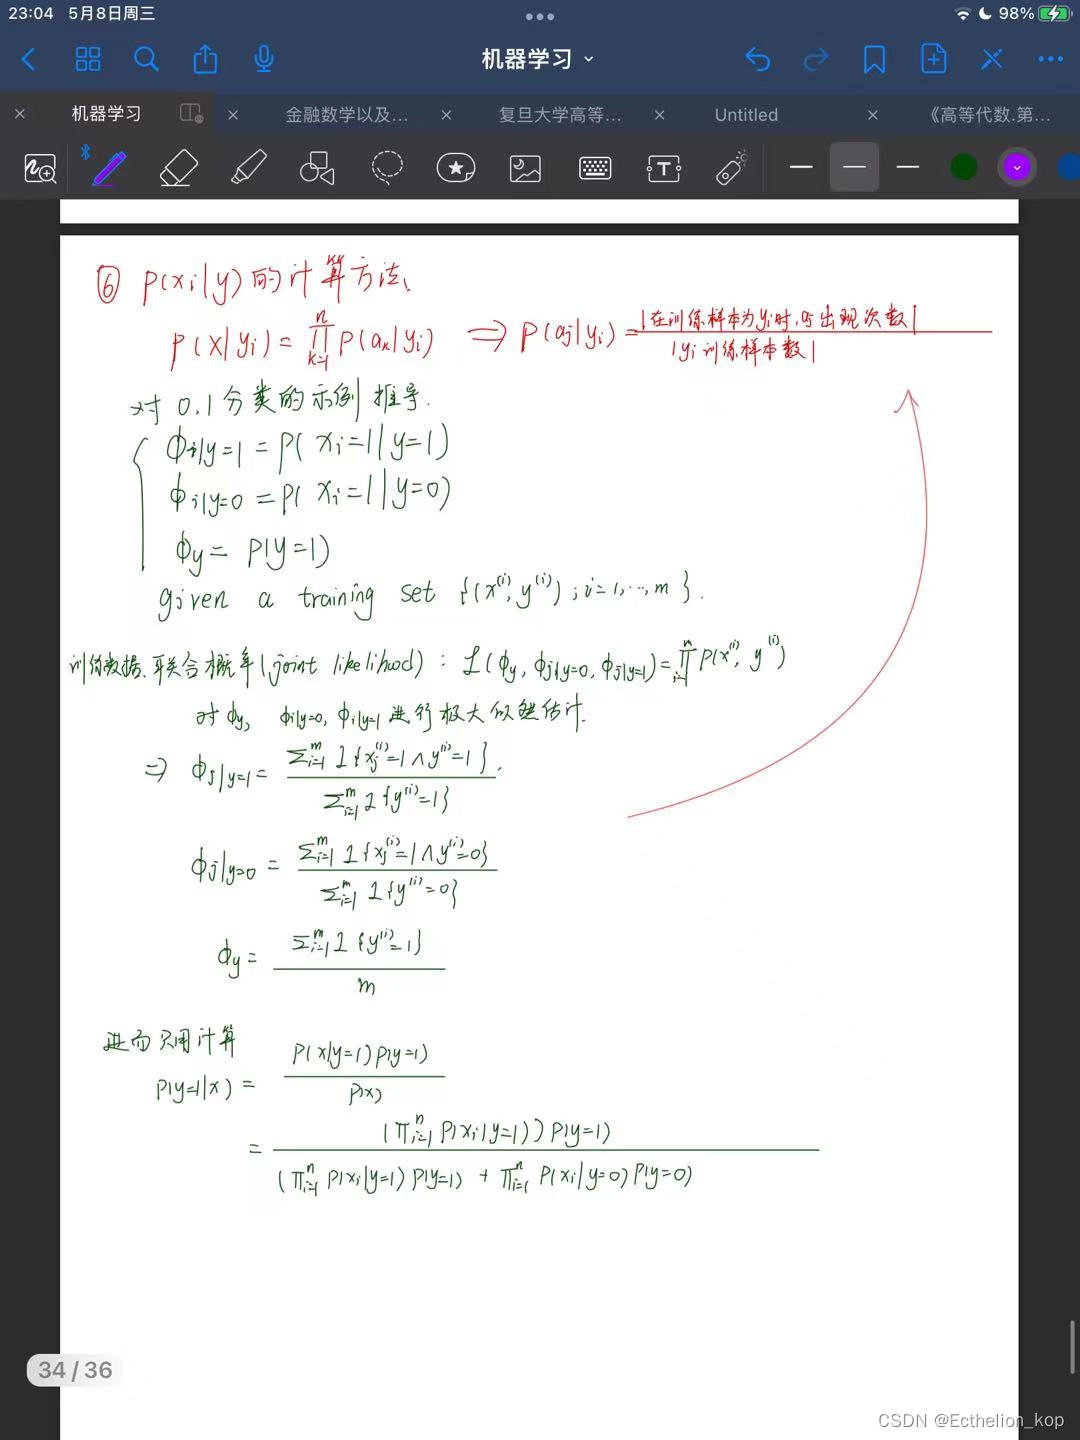 23:04 5月8日周三 98%
机器学习
机器学习 金融数学以及... 复旦大学高等... Untitled 《高等代数.第...
⑥ P(xi|y)的计算方法.
P(X|yi) = ∏_{k=1}^{n} P(ak|yi) ⇒ P(aj|yi) = |在训练样本为yi时,aj出现次数| / |yi训练样本数|
对 0,1分类的示例推导.
ϕi|y=1 = P( xi=1|y=1)
ϕi|y=0 = P( xi=1|y=0)
ϕy = P(y=1)
given a training set {(x^(i), y^(i)) ; i=1,...,m }.
训练数据联合概率(joint likelihood) : L(ϕy, ϕj|y=0, ϕj|y=1) = ∏_{i=1}^{n} P(x^(i), y^(i))
对 ϕy, ϕi|y=0, ϕi|y=1 进行极大似然估计.
⇒ ϕj|y=1 = Σ_{i=1}^{m} 1{xj^(i)=1 ∧ y^(i)=1} / Σ_{i=1}^{m} 1{y^(i)=1}
ϕj|y=0 = Σ_{i=1}^{m} 1{xj^(i)=1 ∧ y^(i)=0} / Σ_{i=1}^{m} 1{y^(i)=0}
ϕy = Σ_{i=1}^{m} 1{y^(i)=1} / m
进而只用计算
P(y=1|x) = P(x|y=1)P(y=1) / P(x)
= (∏_{i=1}^{n} P(xi|y=1))P(y=1) / (∏_{i=1}^{n} P(xi|y=1)P(y=1) + ∏_{i=1}^{n} P(xi|y=0)P(y=0)
34 / 36
CSDN @Ecthelion_kop